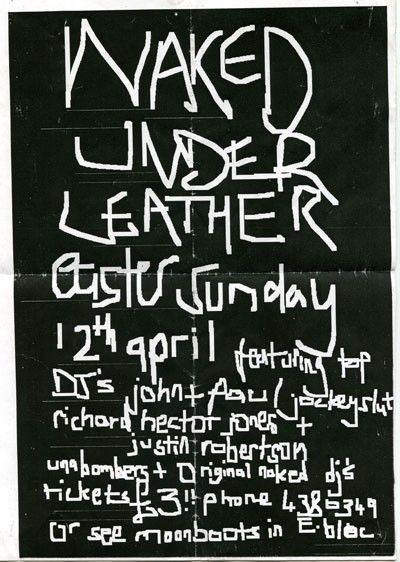 NAKED
UNDER
LEATHER
Easter Sunday
12th april featuring top
DJ's john + Paul jockeyslut
richard hector jones +
justin robertson
unabombers + original naked dj's
tickets £3!! phone 4386349
or see moonboots in E.bloc